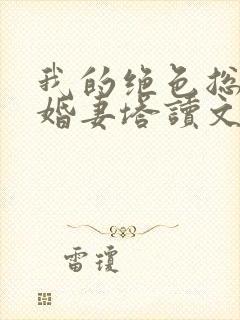 我的绝色总
婚妻塔讀文
雷瓊